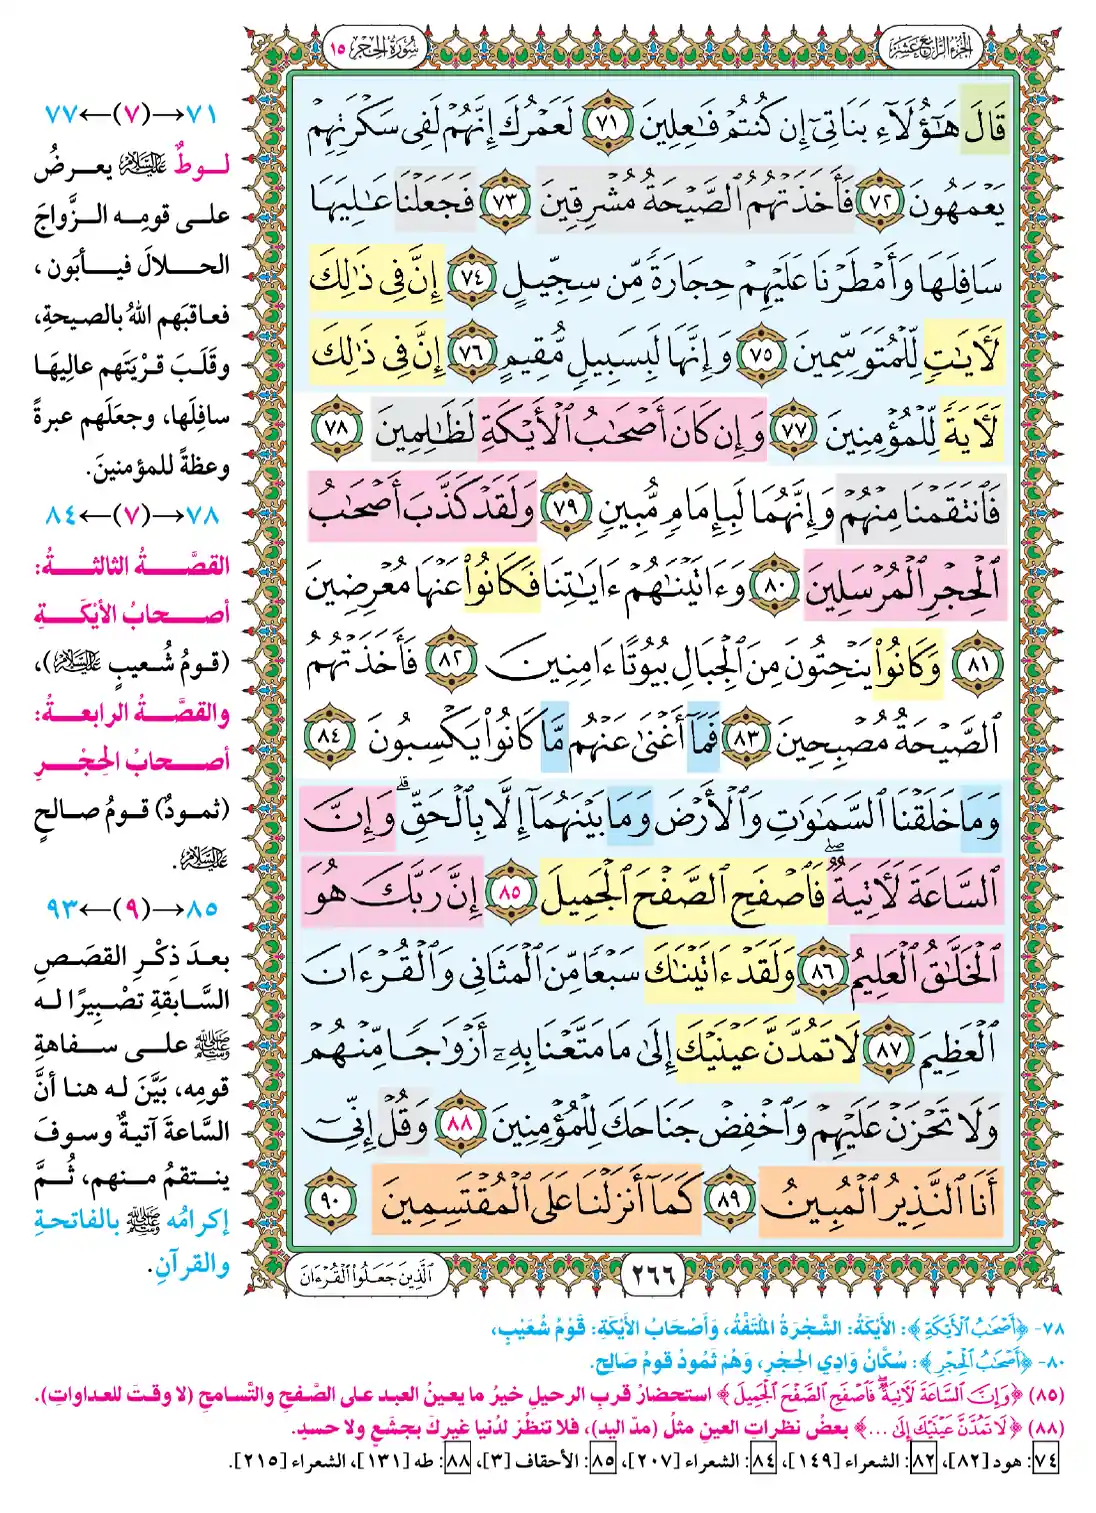 الجزء الرابع عشر
سورة الحجر ١٥
قَالَ هَٰٓؤُلَآءِ بَنَاتِيٓ إِن كُنتُمْ فَٰعِلِينَ ٧١ لَعَمْرُكَ إِنَّهُمْ لَفِي سَكْرَتِهِمْ
يَعْمَهُونَ ٧٢ فَأَخَذَتْهُمُ ٱلصَّيْحَةُ مُشْرِقِينَ ٧٣ فَجَعَلْنَا عَٰلِيَهَا
سَافِلَهَا وَأَمْطَرْنَا عَلَيْهِمْ حِجَارَةً مِّن سِجِّيلٍ ٧٤ إِنَّ فِي ذَٰلِكَ
لَأٓيَٰتٍ لِّلْمُتَوَسِّمِينَ ٧٥ وَإِنَّهَا لَبِسَبِيلٍ مُّقِيمٍ ٧٦ إِنَّ فِي ذَٰلِكَ
لَأٓيَةً لِّلْمُؤْمِنِينَ ٧٧ وَإِن كَانَ أَصْحَٰبُ ٱلْأَيْكَةِ لَظَٰلِمِينَ ٧٨
فَٱنتَقَمْنَا مِنْهُمْ وَإِنَّهُمَا لَبِإِمَامٍ مُّبِينٍ ٧٩ وَلَقَدْ كَذَّبَ أَصْحَٰبُ
ٱلْحِجْرِ ٱلْمُرْسَلِينَ ٨٠ وَءَاتَيْنَٰهُمْ ءَايَٰتِنَا فَكَانُوا۟ عَنْهَا مُعْرِضِينَ
٨١ وَكَانُوا۟ يَنْحِتُونَ مِنَ ٱلْجِبَالِ بُيُوتًا ءَامِنِينَ ٨٢ فَأَخَذَتْهُمُ
ٱلصَّيْحَةُ مُصْبِحِينَ ٨٣ فَمَآ أَغْنَىٰ عَنْهُم مَّا كَانُوا۟ يَكْسِبُونَ ٨٤
وَمَا خَلَقْنَا ٱلسَّمَٰوَٰتِ وَٱلْأَرْضَ وَمَا بَيْنَهُمَآ إِلَّا بِٱلْحَقِّ ۗ وَإِنَّ
ٱلسَّاعَةَ لَأٓتِيَةٌ ۖ فَٱصْفَحِ ٱلصَّفْحَ ٱلْجَمِيلَ ٨٥ إِنَّ رَبَّكَ هُوَ
ٱلْخَلَّٰقُ ٱلْعَلِيمُ ٨٦ وَلَقَدْ ءَاتَيْنَٰكَ سَبْعًا مِّنَ ٱلْمَثَانِي وَٱلْقُرْءَانَ
ٱلْعَظِيمَ ٨٧ لَا تَمُدَّنَّ عَيْنَيْكَ إِلَىٰ مَا مَتَّعْنَا بِهِۦٓ أَزْوَٰجًا مِّنْهُمْ
وَلَا تَحْزَنْ عَلَيْهِمْ وَٱخْفِضْ جَنَاحَكَ لِلْمُؤْمِنِينَ ٨٨ وَقُلْ إِنِّيٓ
أَنَا ٱلنَّذِيرُ ٱلْمُبِينُ ٨٩ كَمَآ أَنزَلْنَا عَلَى ٱلْمُقْتَسِمِينَ ٩٠
٢٦٦
ٱلَّذِينَ جَعَلُوا۟ ٱلْقُرْءَانَ
٧١→(٧)←٧٧
لوطٌ عليه السلام يعرضُ
على قومِه الزَّواجَ
الحلالَ فيأبَون،
فعاقبَهم اللهُ بالصيحةِ،
وقلَبَ قرْيَتَهم عالِيهَا
سافِلَها، وجعَلَهم عبرةً
وعظةً للمؤمنينَ.
٧٨→(٧)←٨٤
القصَّةُ الثالثةُ:
أصحابُ الأيْكَةِ
(قومُ شُعيبٍ عليه السلام)،
والقصَّةُ الرابعةُ:
أصحابُ الحِجْرِ
(ثمودٌ) قومُ صالحٍ
عليه السلام.
٨٥→(٩)←٩٣
بعدَ ذِكْرِ القصَصِ
السَّابقةِ تصْبِيرًا له
ﷺ على سفاهةِ
قومِه، بَيَّنَ له هنا أنَّ
السَّاعةَ آتيةٌ وسوفَ
ينتقمُ منهم، ثُمَّ
إكرامُه ﷺ بالفاتحةِ
والقرآنِ.
٧٨- ﴿أَصْحَٰبُ ٱلْأَيْكَةِ﴾: الأَيْكَةُ: الشَّجْرَةُ المُلْتَفَّةُ، وَأَصْحَابُ الأَيْكَةِ: قَوْمُ شُعَيْبٍ،
٨٠- ﴿أَصْحَٰبُ ٱلْحِجْرِ﴾: سُكَّانُ وَادِي الحِجْرِ، وَهُمْ ثَمُودُ قومُ صَالِحٍ.
(٨٥) ﴿وَإِنَّ ٱلسَّاعَةَ لَأٓتِيَةٌ ۖ فَٱصْفَحِ ٱلصَّفْحَ ٱلْجَمِيلَ﴾ استحضارُ قربِ الرحيلِ خيرُ ما يعينُ العبد على الصَّفحِ والتَّسامحِ (لا وقتَ للعداواتِ).
(٨٨) ﴿لَا تَمُدَّنَّ عَيْنَيْكَ إِلَىٰ ...﴾ بعضُ نظراتِ العينِ مثلُ (مدّ اليد)، فلا تنظُرْ لدُنيا غيرِكَ بجشَعٍ ولا حسدٍ.
٧٤: هود [٨٢]، ٨٢: الشعراء [١٤٩]، ٨٤: الشعراء [٢٠٧]، ٨٥: الأحقاف [٣]، ٨٨: طه [١٣١]، الشعراء [٢١٥].